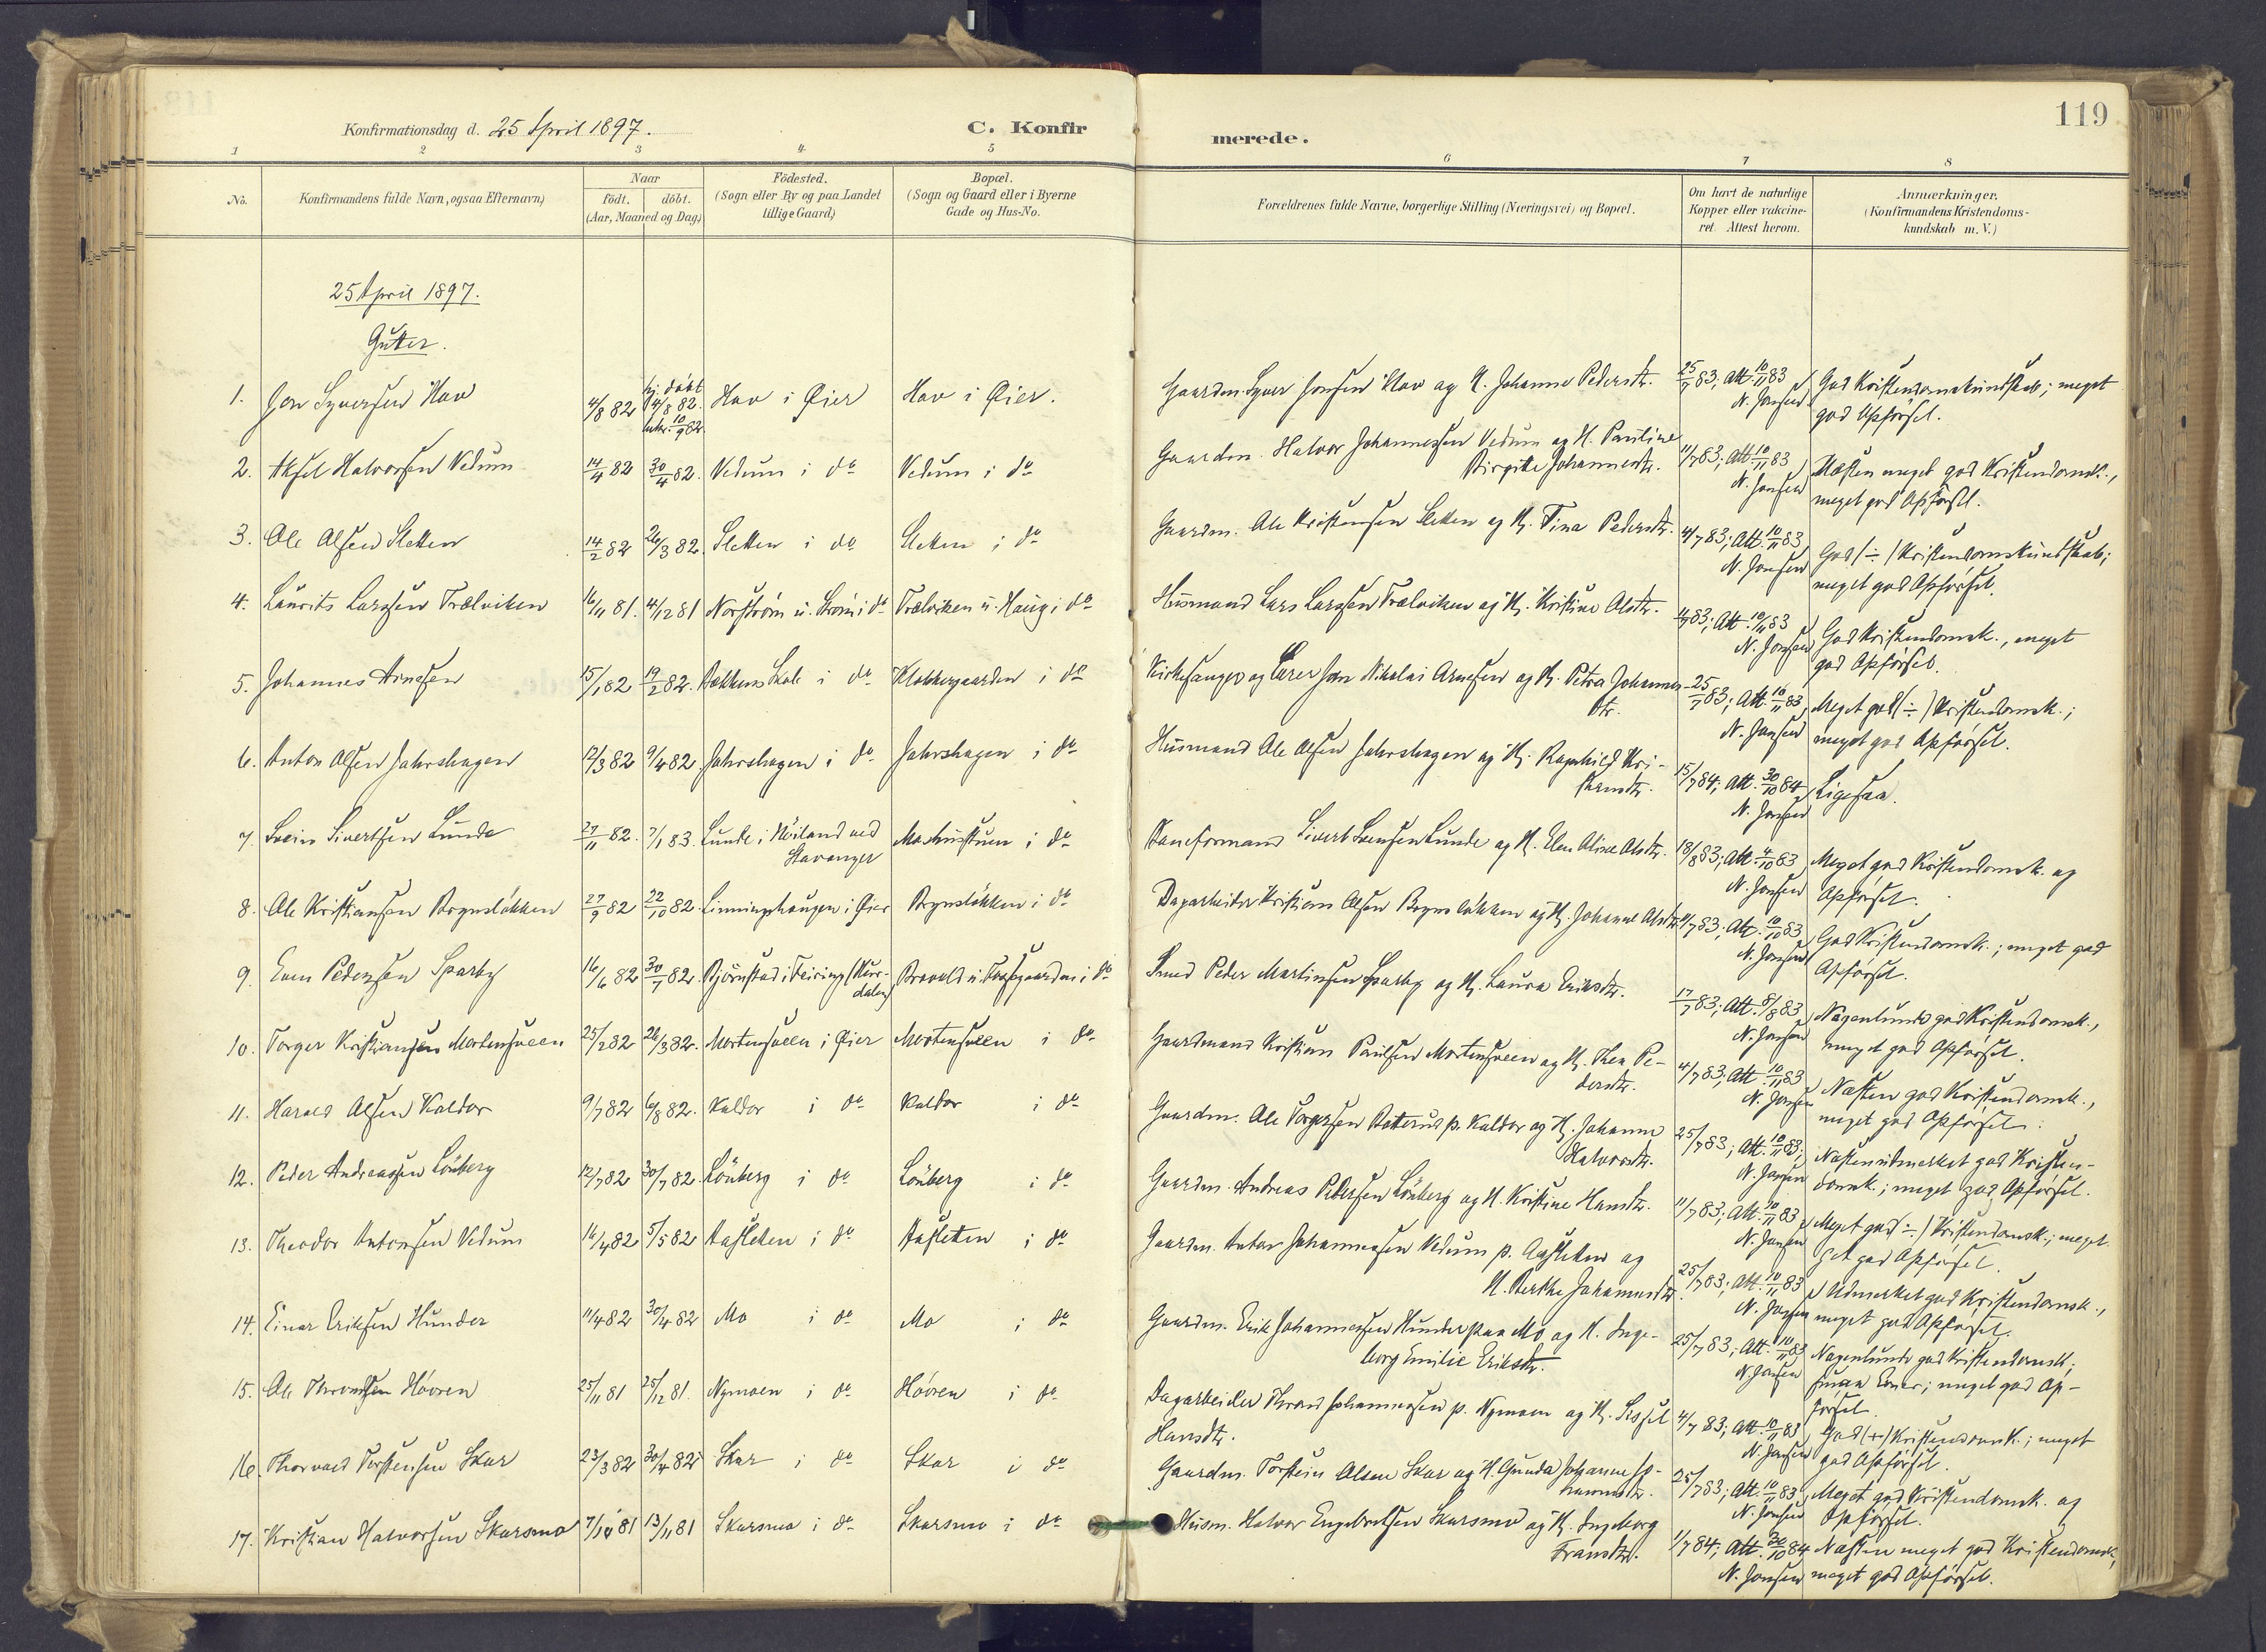 119
Konfirmationsdag d. 25 April 1897.
C. Konfirmerede.
1 2 3 4 5 6 7 8
No.
Konfirmandens fulde Navn, ogsaa Efternavn)
Naar
födt. döbt.
(Aar, Maaned og Dag)
Födested.
(Sogn eller By og paa Landet
tillige Gaard)
Bopæl.
(Sogn og Gaard eller i Byerne
Gade og Hus-No.
Forældrenes fulde Navne, borgerlige Stilling (Næringsvei) og Bopæl.
Om havt de naturlige
Kopper eller vakcine-
ret. Attest herom.
Anmærkninger.
(Konfirmandens Kristendoms-
kundskab m. V.)
25 April 1897.
Gutter.
1. Jon Syversen Hov 4/8 82 hj. döbt 14/8 82. 10/9 82. Hov i Öier Hov i Öier. Gaardm. Syver Jonsen Hov og H. Johanne Pedersdtr. 25/7 83; Att. 10/11 83 N. Jonsen God Kristendomskundskab; meget
god Opförsel.
2. Aksel Halvorsen Vedum 14/4 82 30/4 82. Vedum i do Vedum i do Gaardm. Halvor Johannessen Vedum og H. Pauline
Birgitte Johannesdtr. 11/7 83; Att. 10/11 83 N. Jonsen Næsten meget god Kristendomsk.,
meget god Opförsel.
3. Ole Olsen Sletten 14/2 82 26/3 82. Sletten i do Sletten i do Gaardm. Ole Kristensen Sletten og H. Tina Pedersdtr. 4/7 83; Att. 10/11 83 N. Jonsen God (÷) Kristendomskundskab;
meget god Opförsel.
4. Laurits Larssen Trælviken 16/11 81. 4/12 81 Norström u. Ström i do Trælviken u. Haug i do Husmand Lars Larssen Trælviken og H. Kristine Olsdtr. 4/7 83; Att. 10/11 83 N. Jonsen God Kristendomsk., meget
god Opförsel.
5. Johannes Arnesen 15/1 82 19/2 82. Bakkens Skole i do Klokkergaarden i do Kirkesanger og Lærer Jon Nikolai Arnesen og H. Petra Johannes-
dtr. 25/7 83; Att. 10/11 83, N. Jonsen Meget god (÷) Kristendomsk.;
meget god Opförsel.
6. Anton Olsen Jahrshagen 12/3 82 9/4 82. Jahrshagen i do Jahrshagen i do Husmand Ole Olsen Jahrshagen og H. Ragnhild Kri-
stensdtr. 15/7 84; Att. 30/10 84 N. Jonsen Ligesaa.
7. Svein Sivertsen Lunde 27/11 82. 7/1 83. Lunde i Höiland ved
Stavanger i do Baneformand Sivert Svensen Lunde og H. Elen Oline Olsdtr. 18/8 83; Att. 4/10 83 N. Jonsen Meget god Kristendomsk. og
Opförsel.
8. Ole Kristiansen Brynslökken 27/9 82 22/10 82. Linningshaugen i Öier Brynslökken i do Dagarbeider Kristian Olsen Brynslökken og H. Johanne Olsdtr. 11/7 83; Att. 10/10 83 N. Jonsen God Kristendomsk.; meget god
Opförsel.
9. Even Pedersen Sparby 16/6 82 30/7 82. Björnstad i Feiring (Hur-
dalen) Bravold u. i do Smed Peder Martinsen Sparby og H. Laura Eriksdtr. 17/7 83; Att. 8/8 83 N. Jonsen Nogenlunde god Kristendomsk.,
meget god Opförsel.
10. Torger Kristiansen Mortensveen 25/2 82 26/3 82. Mortensveen i Öier Mortensveen i do Gaardmand Kristian Paulsen Mortensveen og H. Thea Pe-
dersdtr. 4/7 83; Att. 10/11 83 N. Jonsen Næsten god Kristendomsk.,
meget god Opförsel.
11. Harald Olsen Kaldor 9/7 82 6/8 82. Kaldor i do Kaldor i do Gaardm. Ole Torgersen Botterud p. Kaldor og H. Johanne
Halvorsdtr. 25/7 83; Att. 10/11 83; N. Jonsen Næsten udmerket god Kristen-
domsk.; meget god Opförsel.
12. Peder Andreassen Lönberg 12/7 82 30/7 82. Lönberg i do Lönberg i do Gaardm. Andreas Pedersen Lönberg og H. Kristine Hansdtr. 11/7 83; Att. 10/11 83 N. Jonsen Meget god (÷) Kristendomsk.; meget
get god Opförsel.
13. Theodor Antonsen Vedum 16/4 82 5/5 82 Aasletten i do Aasletten i do Gaardm. Anton Johannessen Vedum p. Aasletten og
H. Berthe Johannesdtr. 25/7 83; Att. 10/11 83 N. Jonsen Udmerket god Kristendomsk.,
meget god Opförsel.
14. Einar Eriksen Hunder 11/4 82 30/4 82 Mo i do Mo i do Gaardm. Erik Johannessen Hunder paa Mo og H. Inge-
borg Emilie Eriksdtr. 25/7 83; Att. 10/11 83 N. Jonsen Nogenlunde god Kristendomsk.;
meget god Op-
försel
15. Ole Throndsen Hovren 25/11 81 25/12 81. Nymoen i do Hovren i do Dagarbeider Thrond Johannessen p. Nymoen og H. Sissel
Hansdtr. 4/7 83; Att. 10/11 83 N. Jonsen God (+) Kristendomsk.; meget
god Opförsel.
16. Thorvald Torstensen Skar 23/3 82 30/4 82 Skar i do Skar i do Gaardm. Torstein Olsen Skar og H. Gunda Johanne Jo-
hannesdtr. 25/7 83; Att. 10/11 83, N. Jonsen Meget god Kristendomsk. og
Opförsel.
17. Kristian Halvorsen Skarsmo 7/10 81 13/11 81 Skarsmo i do Skarsmo i do Husm. Halvor Engebretsen Skarsmo og H. Ingeborg
Fransdtr. 1/7 84; Att. 30/10 84 N. Jonsen Næsten meget god Kristendomsk.,
meget god Opförsel.